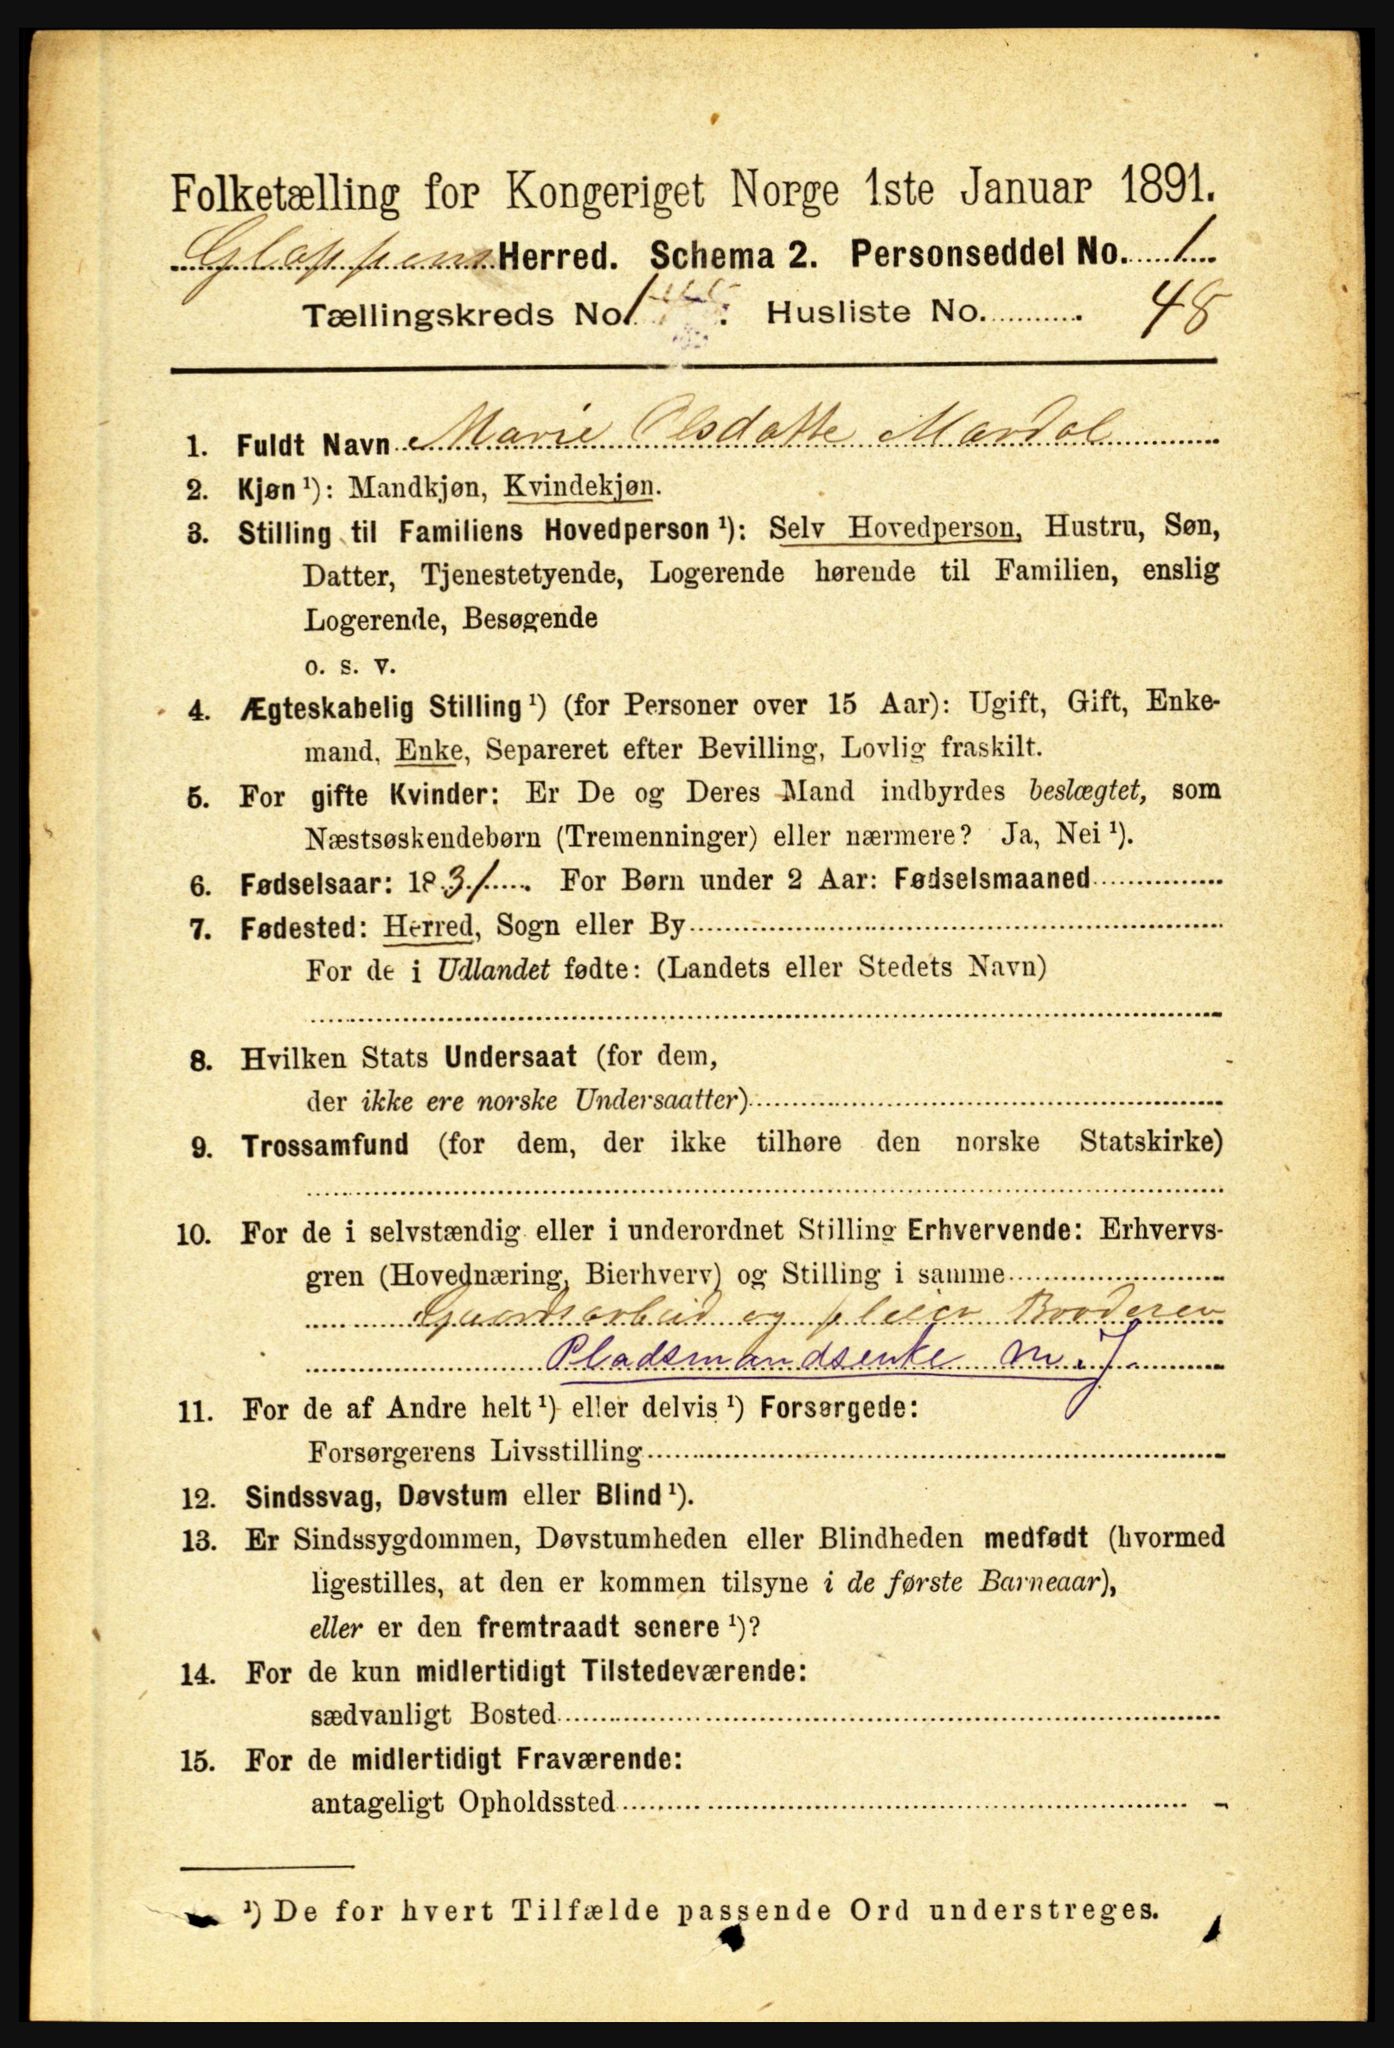 Folketælling for Kongeriget Norge 1ste Januar 1891.
Gloppens Herred. Schema 2. Personseddel No. 1
Tællingskreds No. 1 Husliste No. 48
1. Fuldt Navn Marie Olsdatte Mardal
2. Kjøn ¹): Mandkjøn, Kvindekjøn.
3. Stilling til Familiens Hovedperson ¹): Selv Hovedperson, Hustru, Søn,
Datter, Tjenestetyende, Logerende hørende til Familien, enslig
Logerende, Besøgende
o. s. v.
4. Ægteskabelig Stilling ¹) (for Personer over 15 Aar): Ugift, Gift, Enke-
mand, Enke, Separeret efter Bevilling, Lovlig fraskilt.
5. For gifte Kvinder: Er De og Deres Mand indbyrdes beslægtet, som
Næstsøskendebørn (Tremenninger) eller nærmere? Ja, Nei ¹).
6. Fødselsaar: 1831. For Børn under 2 Aar: Fødselsmaaned
7. Fødested: Herred, Sogn eller By
For de i Udlandet fødte: (Landets eller Stedets Navn)
8. Hvilken Stats Undersaat (for dem,
der ikke ere norske Undersaatter)
9. Trossamfund (for dem, der ikke tilhøre den norske Statskirke)
10. For de i selvstændig eller i underordnet Stilling Erhvervende: Erhvervs-
gren (Hovednæring, Bierhverv) og Stilling i samme
Gaardsarbeid og
Pladsmandsenke m. J.
11. For de af Andre helt ¹) eller delvis ¹) Forsørgede:
Forsørgerens Livsstilling
12. Sindssvag, Døvstum eller Blind ¹).
13. Er Sindssygdommen, Døvstumheden eller Blindheden medfødt (hvormed
ligestilles, at den er kommen tilsyne i de første Barneaar),
eller er den fremtraadt senere ¹)?
14. For de kun midlertidigt Tilstedeværende:
sædvanligt Bosted
15. For de midlertidigt Fraværende:
antageligt Opholdssted
¹) De for hvert Tilfælde passende Ord understreges.